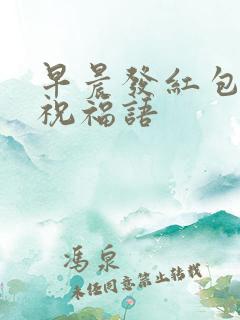 早晨發紅包
祝福語
馮泉
未經同意禁止轉載